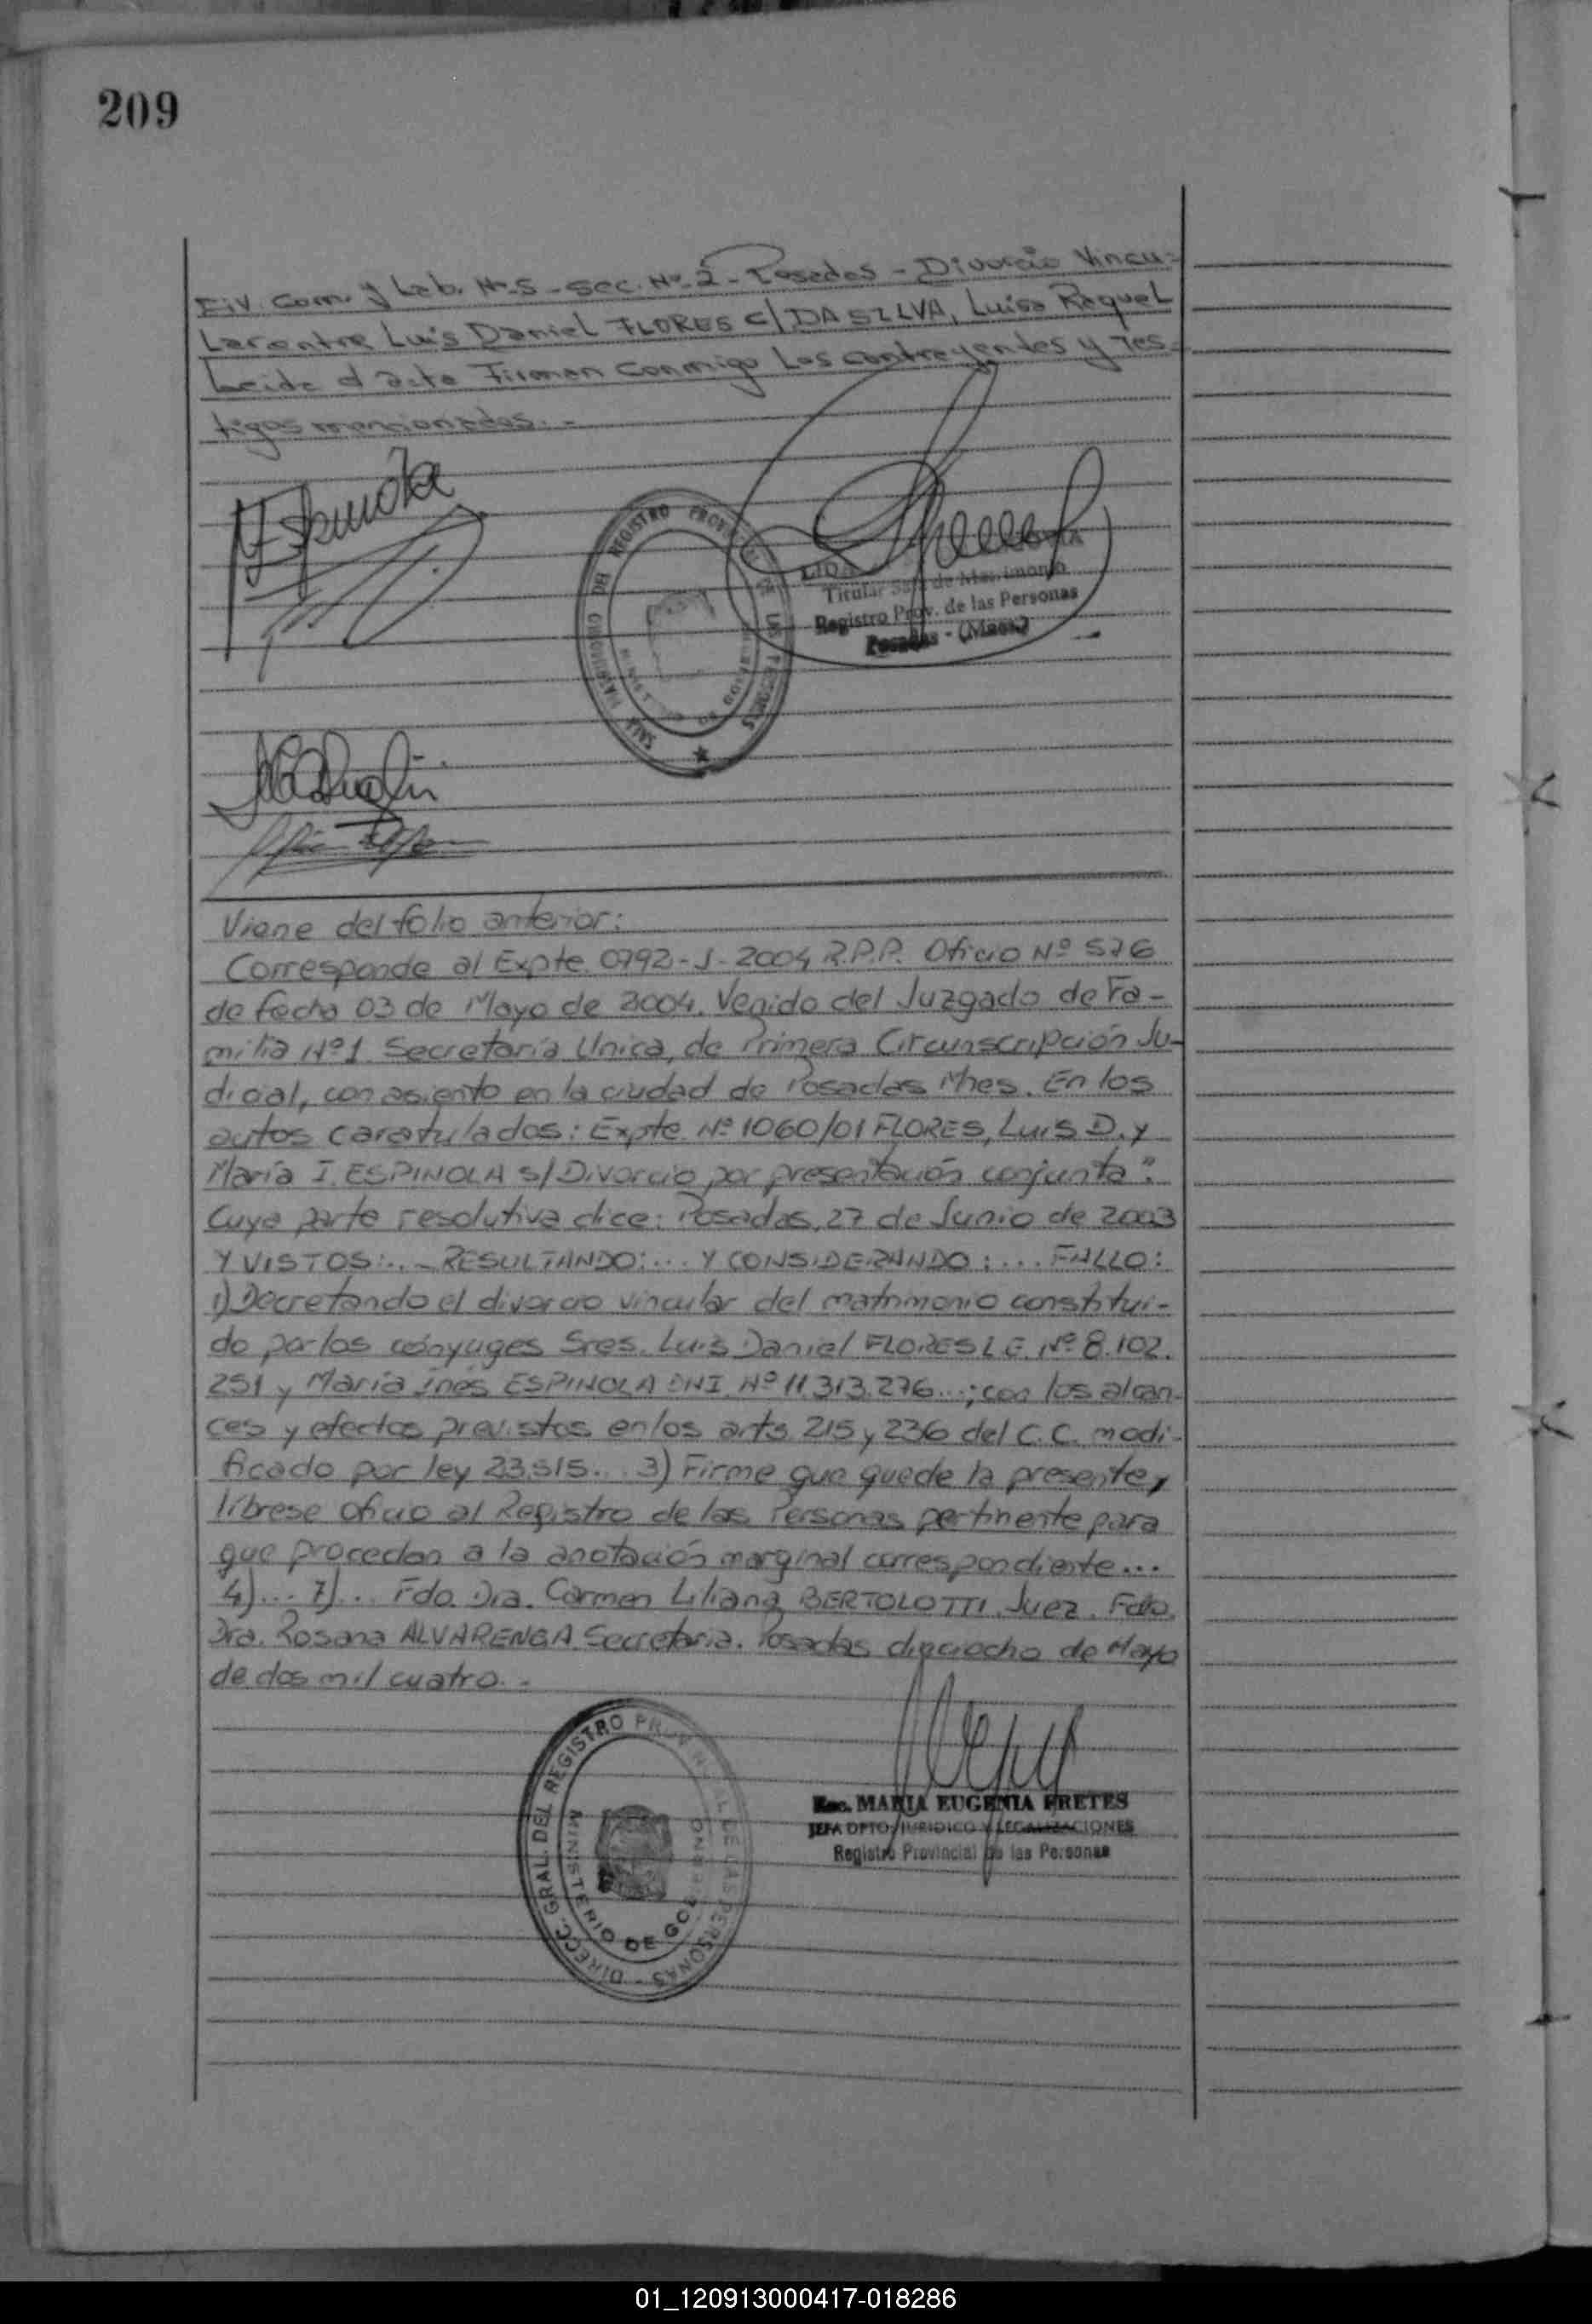 209
Civ. Com. y Lab. Nº 5 - Sec. Nº 2 - Posadas - Divorcio Vincu-
lar entre Luis Daniel FLORES c/ DA SILVA, Luisa Raquel
Leída el acta Firman conmigo los contrayentes y Tes-
tigos mencionados. -
MEspinola
SALA MATRIMONIO DEL REGISTRO PROVINCIAL DE LAS PERSONAS
LIDA
Titular Sala de Matrimonio
Registro Prov. de las Personas
Posadas - (Mnes.)
Viene del folio anterior:
Corresponde al Expte. 0792-J-2004 R.P.P. Oficio Nº 576
de fecha 03 de Mayo de 2004. Venido del Juzgado de Fa-
milia Nº1 Secretaría Unica, de Primera Circunscripción Ju-
dicial, con asiento en la ciudad de Posadas Mnes. En los
autos caratulados: Expte. Nº 1060/01 FLORES, Luis D. y
María I. ESPINOLA s/ Divorcio por presentación conjunta".
Cuya parte resolutiva dice: Posadas, 27 de Junio de 2003
Y VISTOS:... RESULTANDO:... Y CONSIDERANDO:... FALLO:
1) Decretando el divorcio vincular del matrimonio constitui-
do por los cónyuges Sres. Luis Daniel FLORES L.E. Nº 8.102.
251 y María Inés ESPINOLA DNI. Nº 11.313.276...; con los alcan-
ces y efectos previstos en los arts. 215 y 236 del C.C. modi-
ficado por ley 23.515... 3) Firme que quede la presente,
líbrese oficio al Registro de las Personas pertinente para
que procedan a la anotación marginal correspondiente...
4)... 7)... Fdo. Dra. Carmen Liliana BERTOLOTTI. Juez. Fdo.
Dra. Rosana ALVARENGA. Secretaria. Posadas dieciocho de Mayo
de dos mil cuatro. -
DIRECC. GRAL. DEL REGISTRO PROVINCIAL DE LAS PERSONAS -
MINISTERIO DE GOBIERNO
Esc. MARIA EUGENIA FRETES
JEFA DPTO. JURIDICO Y LEGALIZACIONES
Registro Provincial de las Personas
01_120913000417-018286